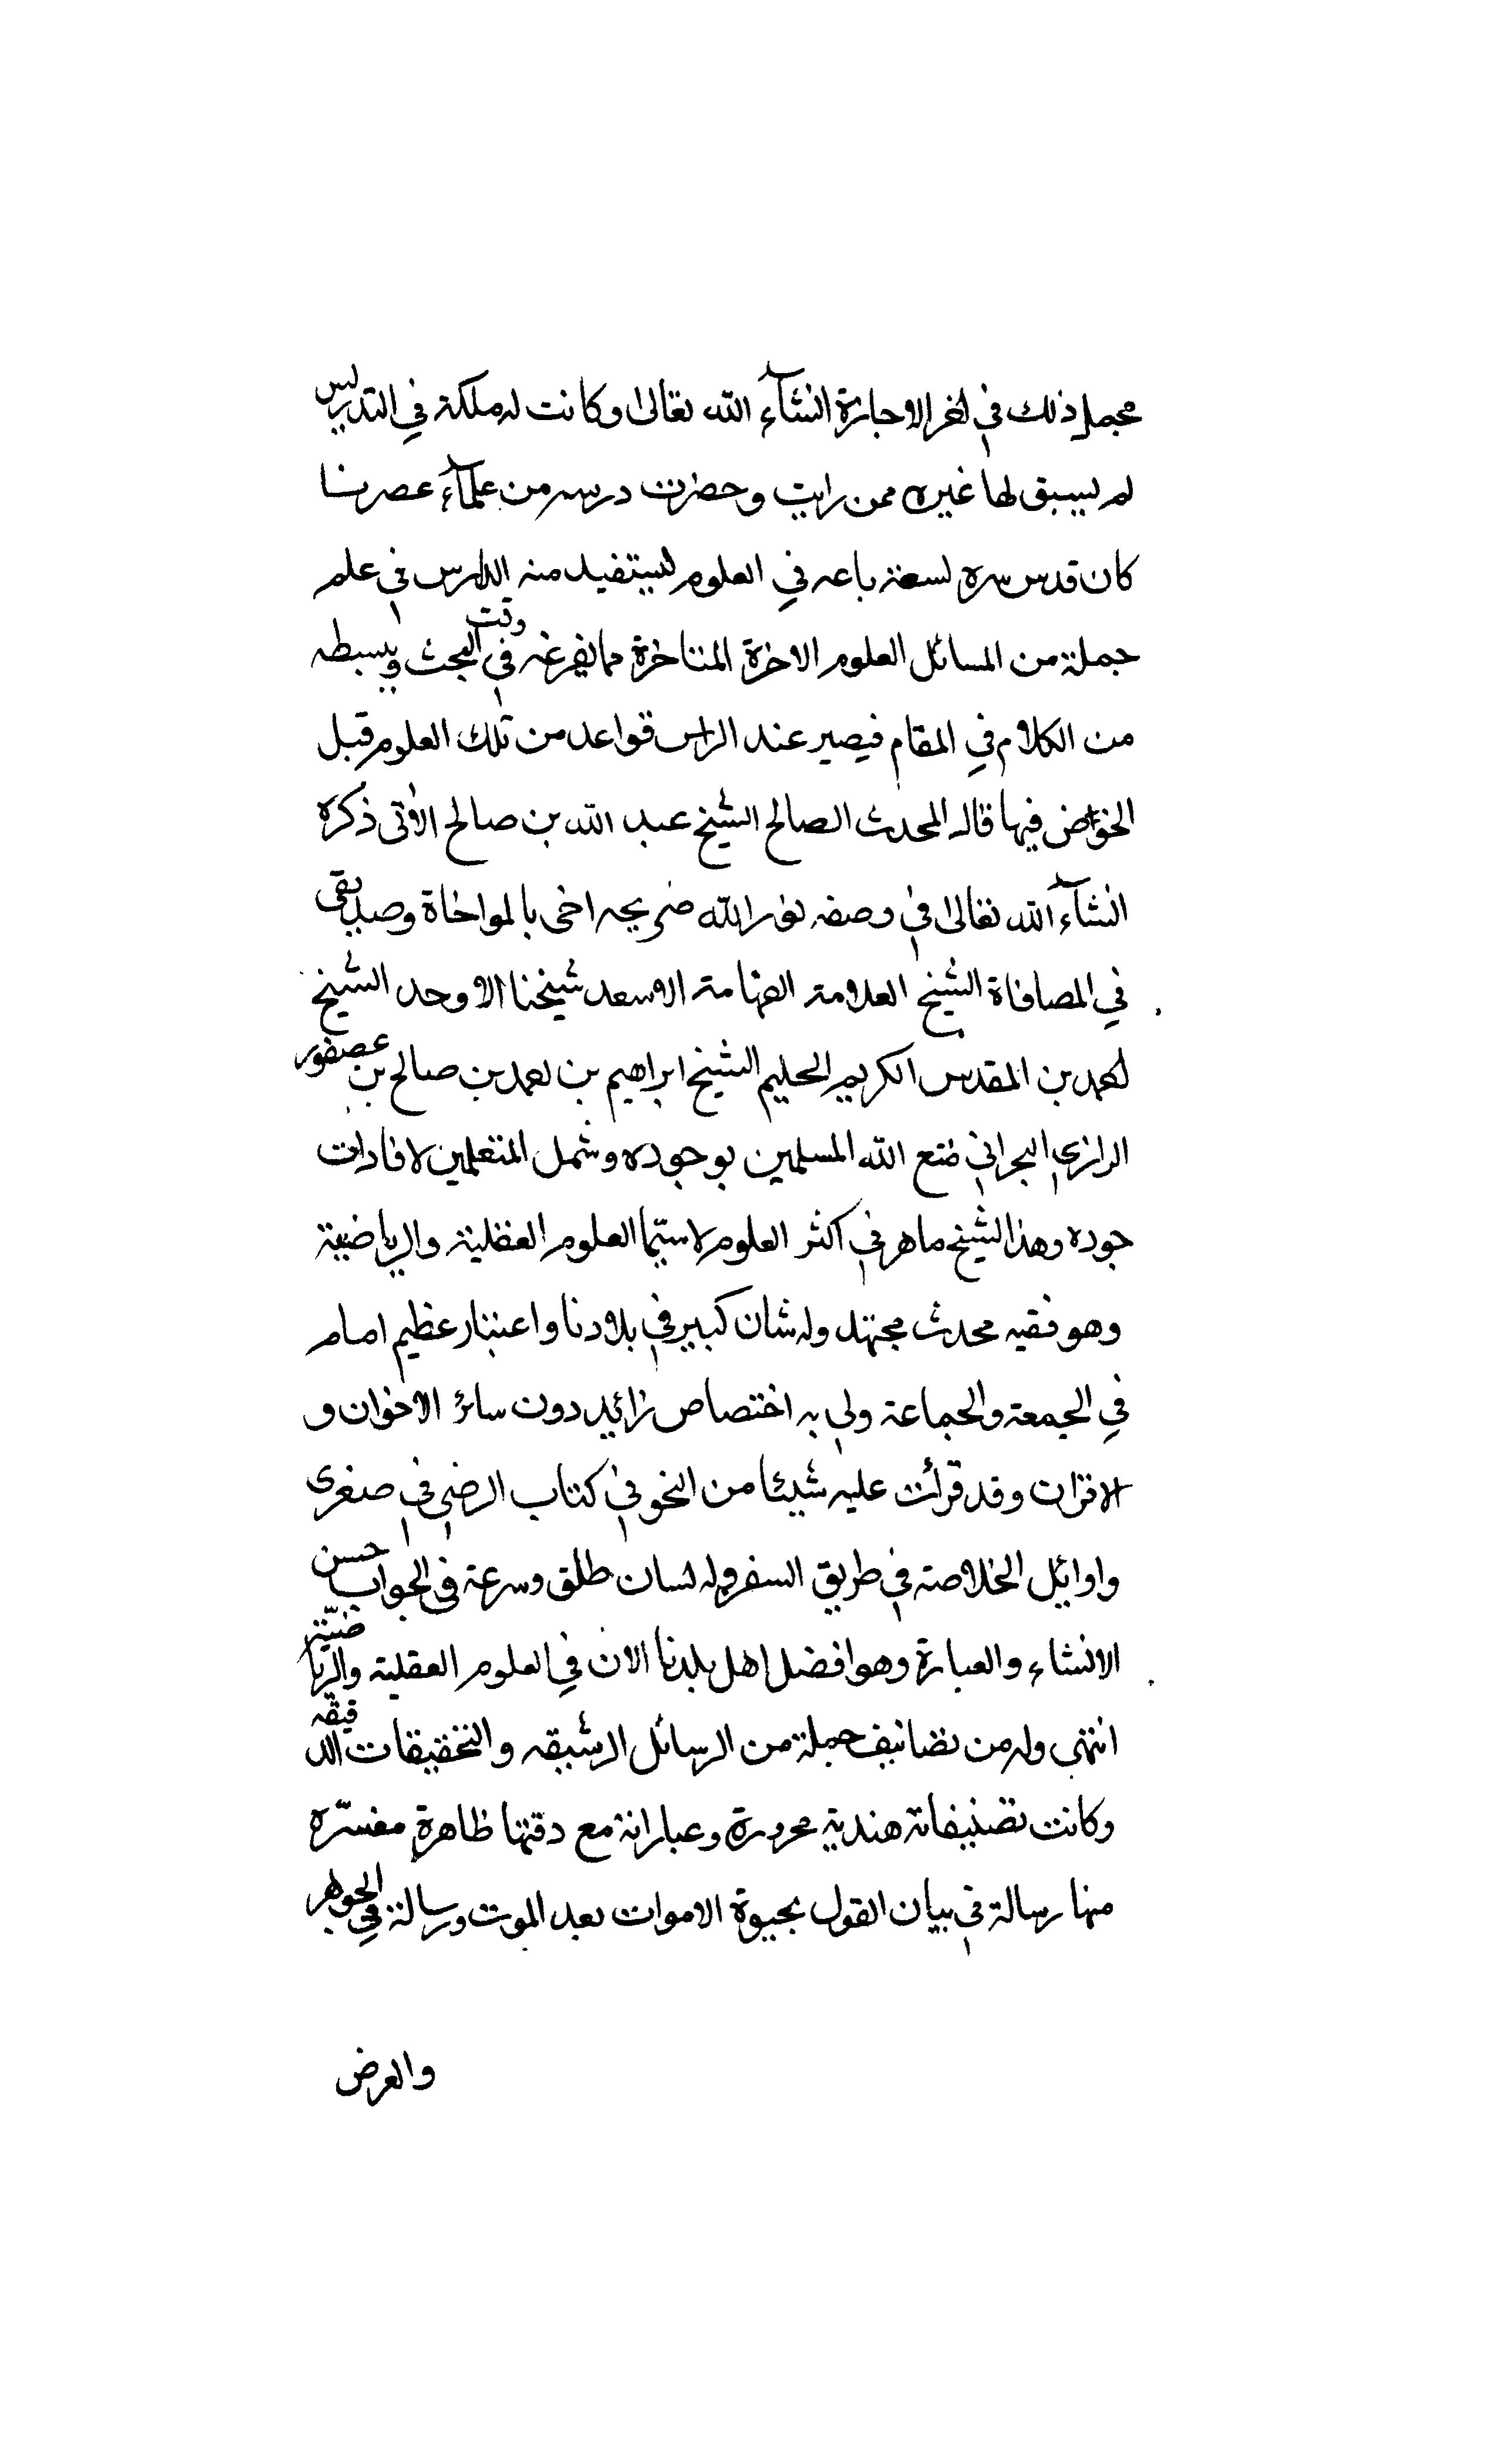 مجمل ذلك في اخر الاجازة انشآء الله تعالى وكانت له ملكة في التدريس
لم يسبق لها غيره ممن رايت وحضرت درسه من علمآء عصرنا
كان قدس سره لسعة باعه في العلوم ليستفيد منه الدارس في علم
جملة من المسائل العلوم الاخرة المتاخرة مما يفرغه في وقت البحث ويبسطه
من الكلام في المقام فيصير عند الراس قواعد من تلك العلوم قبل
الخواض فيها قاله المحدث الصالح الشيخ عبد الله بن صالح الآتى ذكره
انشآء الله تعالى في وصفه نور الله ضريحه اخى بالمواخاة وصديقى
في المصافاة الشيخ العلامة الفهامة الاسعد شيخنا الاوحد الشيخ
احمد بن المقدس الكريم الحليم الشيخ ابراهيم بن احمد بن صالح بن عصفور
الدرازي البحراني متع الله المسلمين بوجوده وشمل المتعلمين لافادات
جوده وهذا الشيخ ماهر في اكثر العلوم لا سيّما العلوم العقلية والرياضية
وهو فقيه محدث مجتهد وله شان كبير في بلادنا واعتبار عظيم امام
في الجمعة والجماعة ولي به اختصاص زائد دون سائر الاخوان و
الاقران وقد قرأت عليه شيئا من النحو في كتاب الرضي في صغرى
واوائل الخلاصة في طريق السفر وله لسان طلق وسرعة في الجواب حسن
الانشاء والعبارة وهو افضل اهل بلدنا الان في العلوم العقلية والرياضيّة
انتهى وله من تصانيف جملة من الرسائل الرشيقه والتحقيقات الدقيقه
وكانت تصنيفاته هندية محرورة وعباراته مع دقتها ظاهرة مفسّره
منها رسالة في بيان القول بحيوة الاموات بعد الموت ورسالة في الجوهر
والعرض